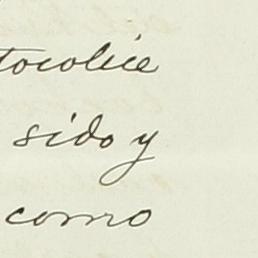 tocolice
sido y
como